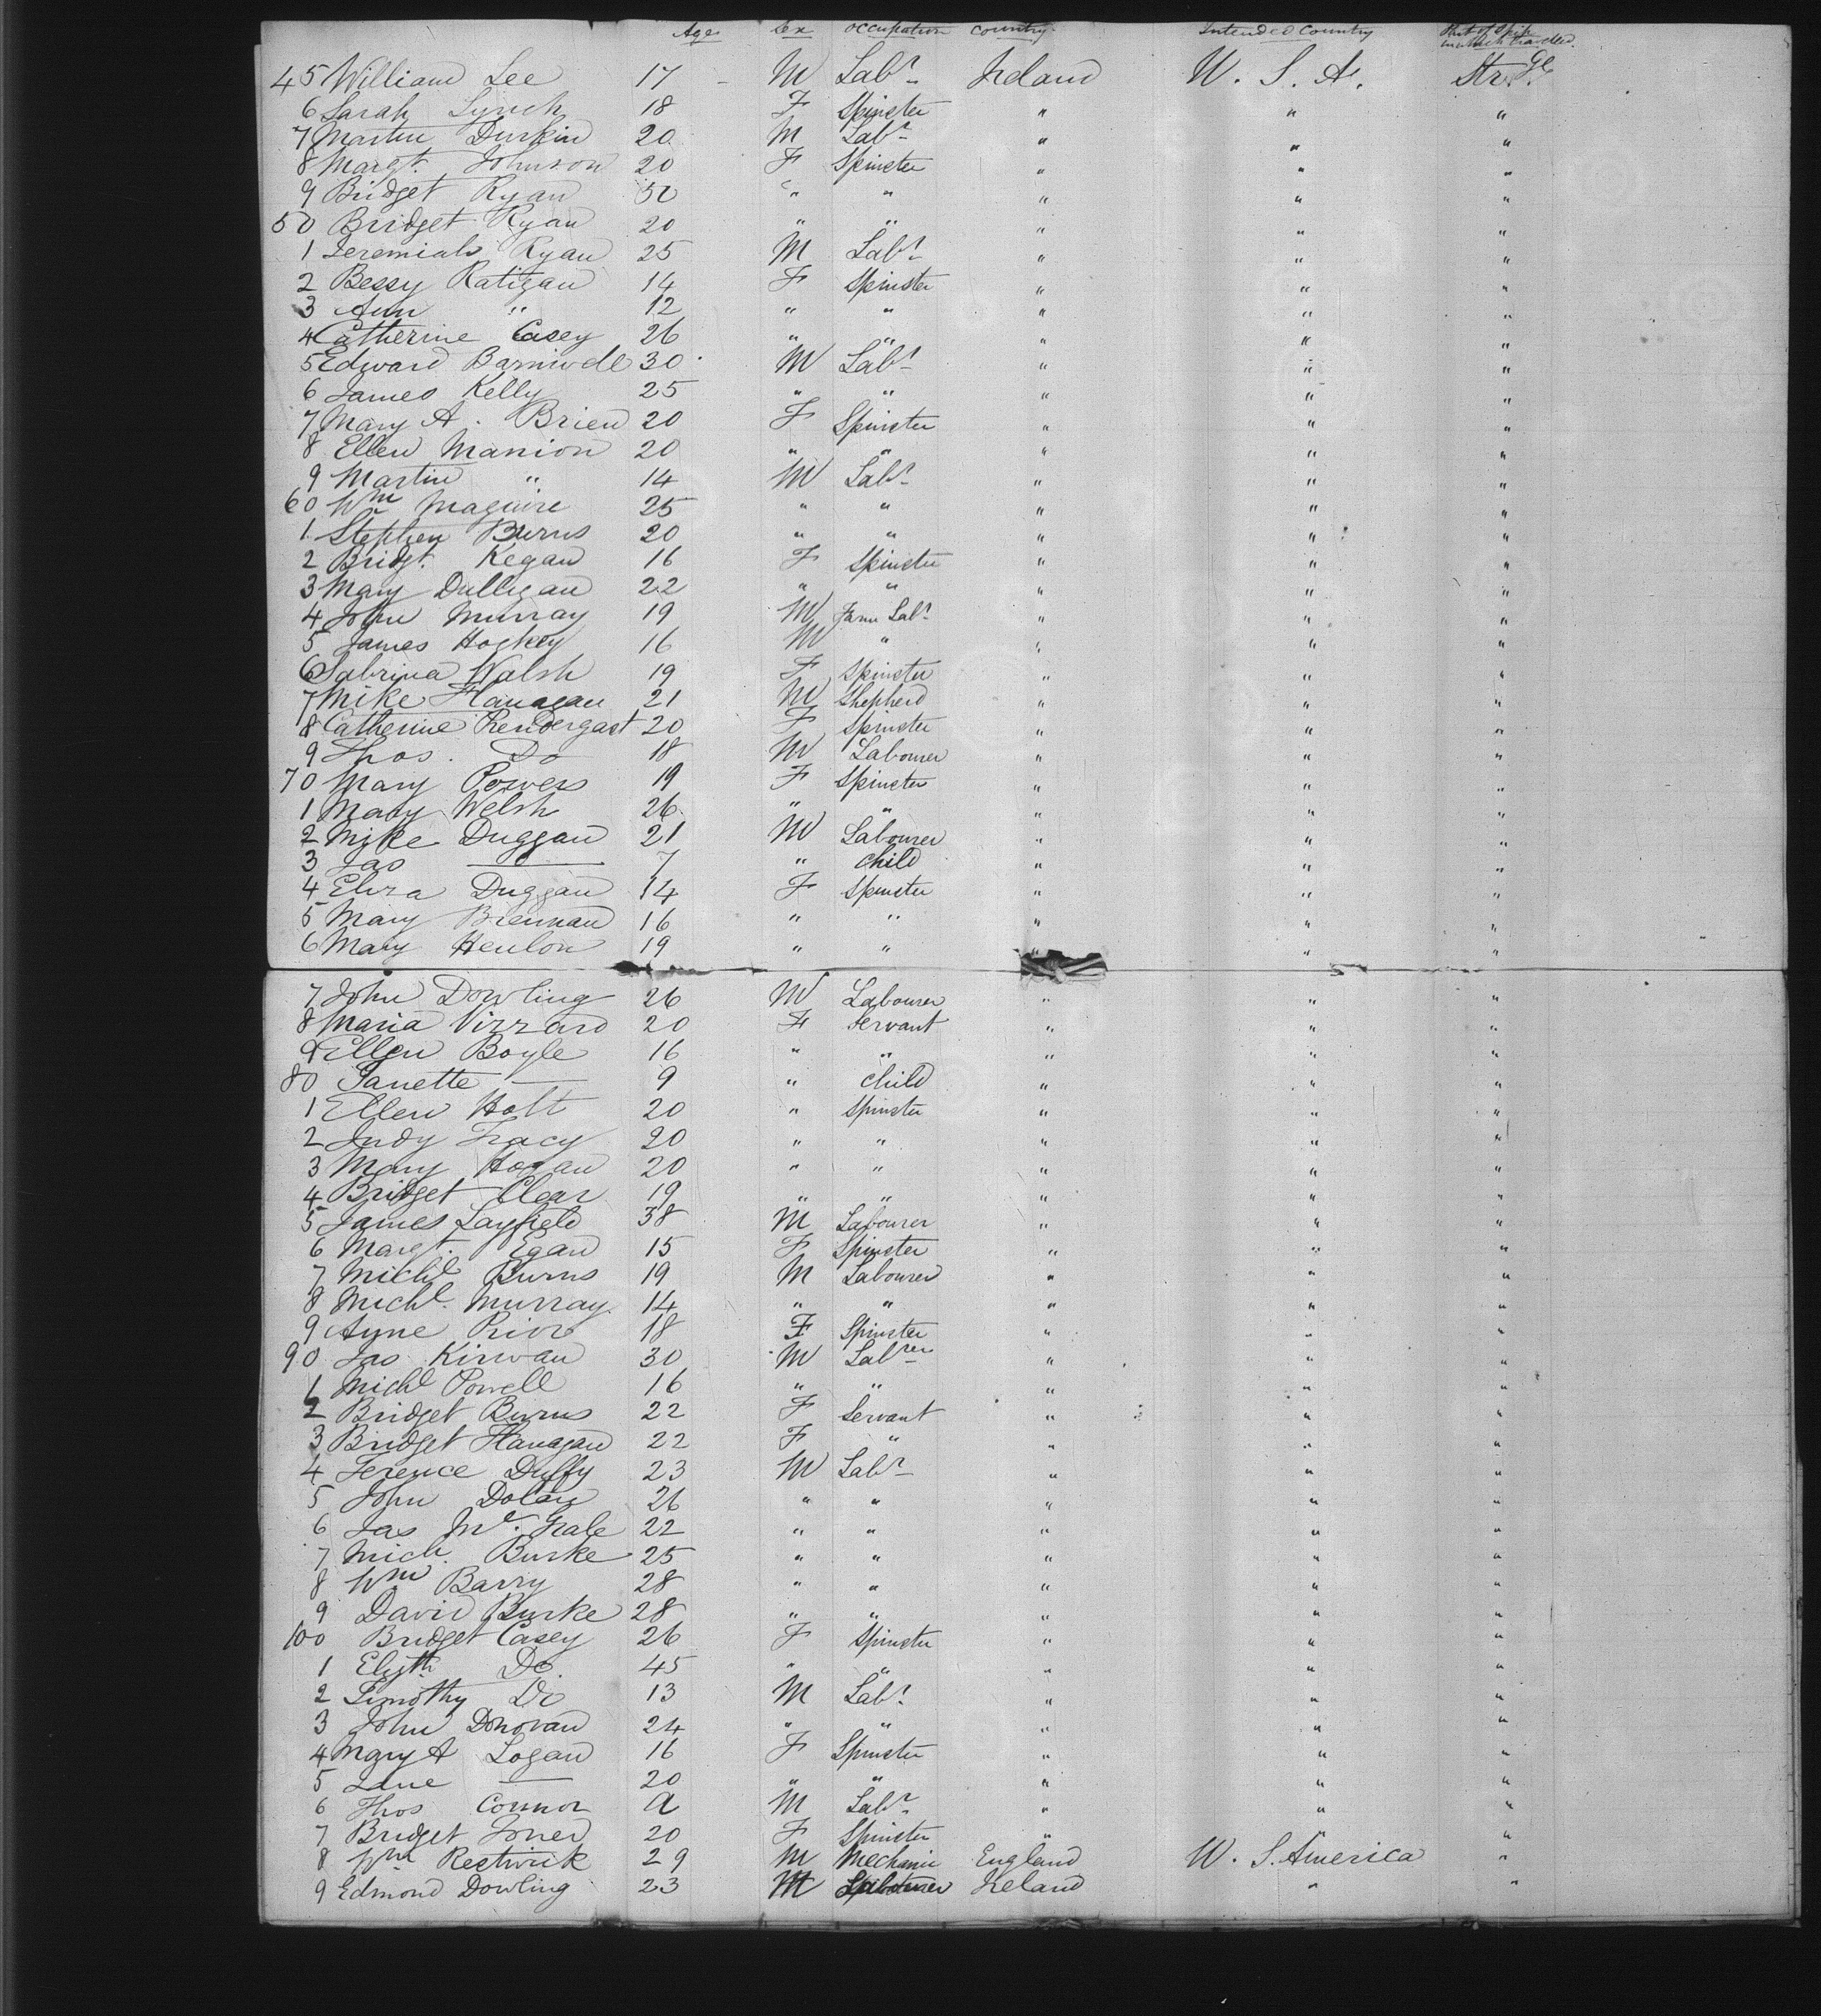 Age Sex Occupation Country Intended Country Part of Ship in which travelled.
45 William Lee 17 - M Labr Ireland U. S. A. Str. ge
6 Sarah Lynch 18 F Spinster " " "
7 Martin Durkin 20 M Labr " " "
8 Margt. Johnson 20 F Spinster " " "
9 Bridget Ryan 50 " " " " "
50 Bridget Ryan 20 " " " " "
1 Jeremiah Ryan 25 M Labr " " "
2 Bessy Ratigan 14 F Spinster " " "
3 Ann " 12 " " " " "
4 Catherine Casey 26 " " " " "
5 Edward Barniwell 30 M Labr " " "
6 James Kelly 25 " " " " "
7 Mary A. Brien 20 F Spinster " " "
8 Ellen Manion 20 " " " " "
9 Martin " 14 M Labr " " "
60 Wm Maguire 25 " " " " "
1 Stephen Burns 20 " " " " "
2 Bridgt. Kegan 16 F Spinster " " "
3 Mary Dulligan 22 " " " " "
4 John Murray 19 M Farm Labr " " "
5 James Hoskey 16 M " " " "
6 Sabrina Walsh 19 F Spinster " " "
7 Mike Flanagan 21 M Shepherd " " "
8 Catherine Prendergast 20 F Spinster " " "
9 Thos. Do 18 M Labourer " " "
70 Mary Powers 19 F Spinster " " "
1 Mary Welsh 26 " " " " "
2 Mike Duggan 21 M Labourer " " "
3 Jas — 7 " Child " " "
4 Eliza Duggan 14 F Spinster " " "
5 Mary Brennan 16 " " " " "
6 Mary Henlon 19 " " " " "
7 John Dowling 26 M Labourer " " "
8 Maria Vizzard 20 F Servant " " "
9 Ellen Boyle 16 " " " " "
80 Janette — 9 " Child " " "
1 Ellen Holt 20 " Spinster " " "
2 Judy Tracy 20 " " " " "
3 Mary Hogan 20 " " " " "
4 Bridget Clear 19 " " " " "
5 James Layfield 38 M Labourer " " "
6 Margt. Egan 15 F Spinster " " "
7 Michl Burns 19 M Labourer " " "
8 Michl. Murray 14 " " " " "
9 Ayne Prior 18 F Spinster " " "
90 Jas Kirwan 30 M Labrer " " "
1 Michl Powell 16 " " " " "
2 Bridget Burns 22 F Servant " " "
3 Bridget Flanagan 22 F " " " "
4 Terence Duffy 23 M Labr " " "
5 John Dolan 26 " " " " "
6 Jas Mc. Hale 22 " " " " "
7 Mich. Burke 25 " " " " "
8 Wm Barry 28 " " " " "
9 David Burke 28 " " " " "
100 Bridget Casey 26 F Spinster " " "
1 Elizth Do. 45 " " " " "
2 Timothy Do 13 M Labr " " "
3 John Donovan 24 " " " " "
4 Mary A Logan 16 F Spinster " " "
5 Jane — 20 " " " " "
6 Thos Connor a M Labr " " "
7 Bridget Jones 20 F Spinster " " "
8 Wm Restwick 29 M Mechanic England U. S. America "
9 Edmond Dowling 23 M Labourer Ireland " "